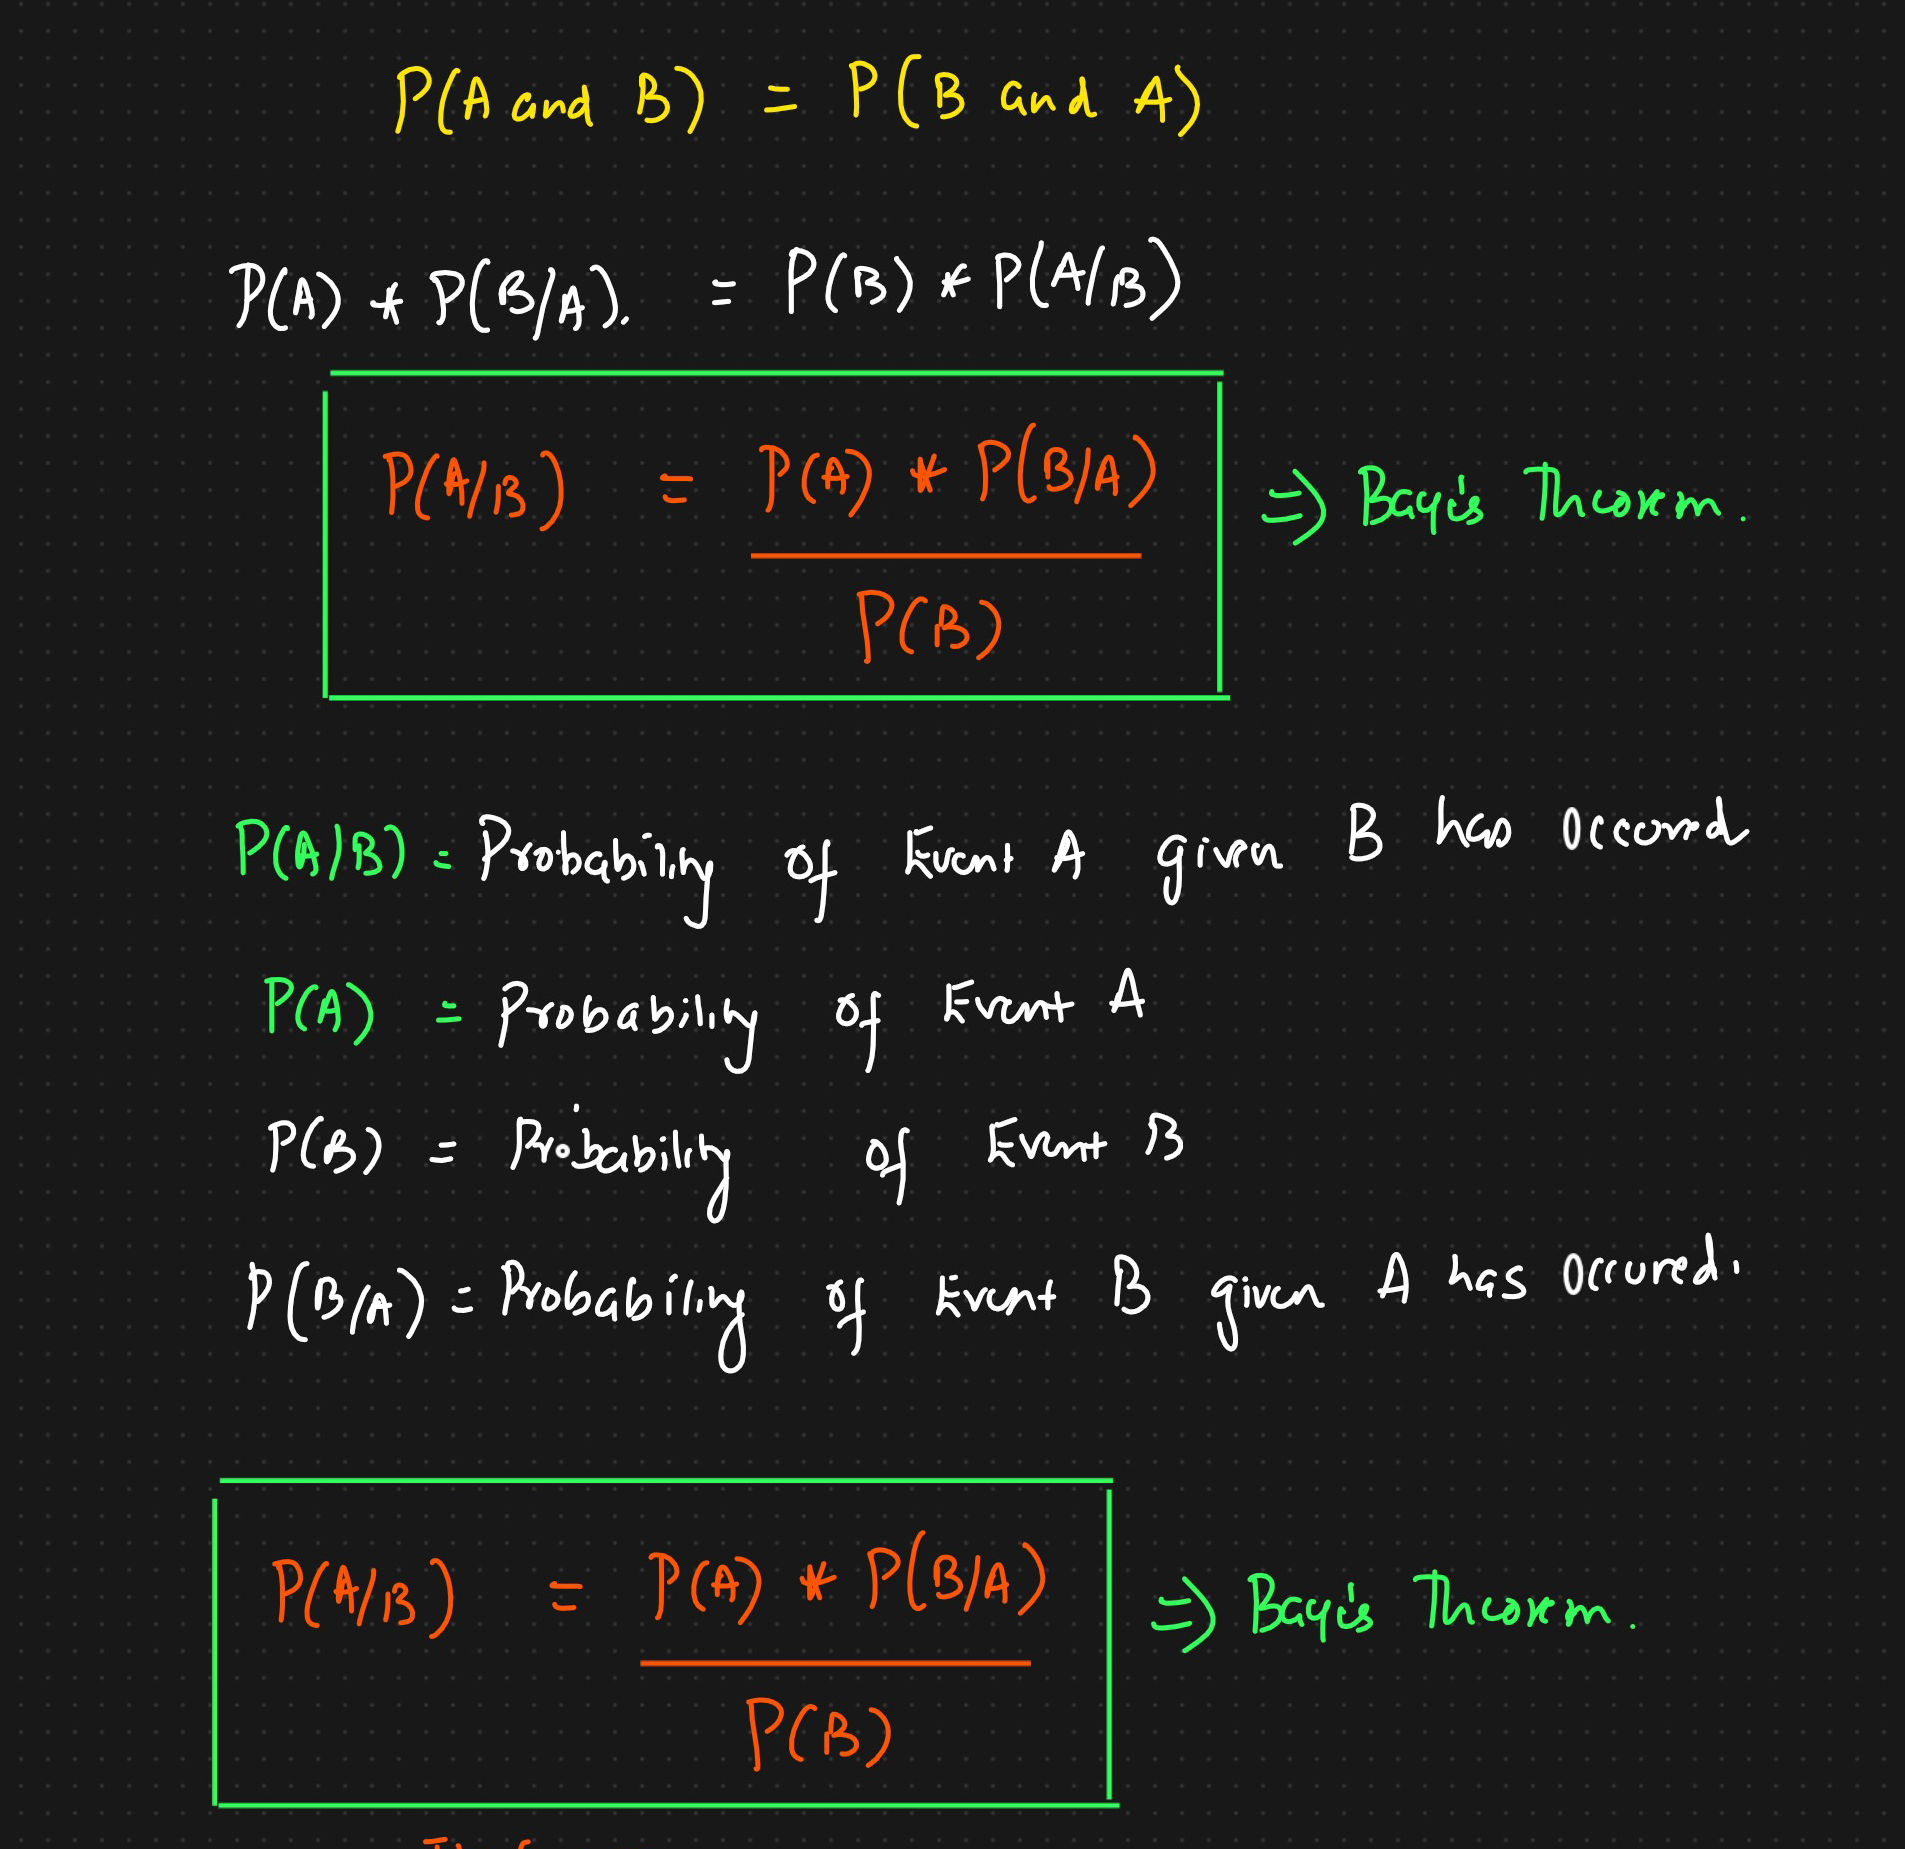 P(A and B) = P(B and A)
P(A) * P(B/A). = P(B) * P(A/B)
P(A/B) = P(A) * P(B/A) => Baye's Theorem.
P(B)
P(A/B) = Probability of Event A given B has Occured
P(A) = Probability of Event A
P(B) = Probability of Event B
P(B/A) = Probability of Event B given A has Occured.
P(A/B) = P(A) * P(B/A) => Baye's Theorem.
P(B)